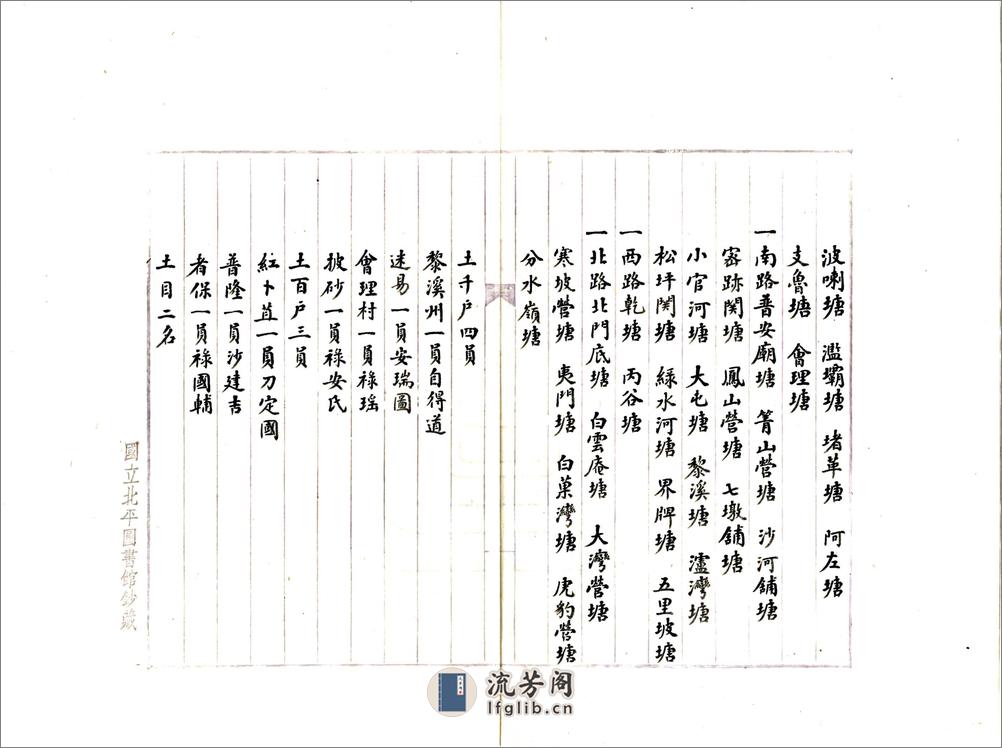 波喇塘 濫壩塘 堵革塘 阿左塘
支魯塘 會理塘
一南路普安廟塘 箐山營塘 沙河舖塘
密跡関塘 鳳山營塘 七墩舖塘
小官河塘 大屯塘 黎溪塘 瀘灣塘
松坪関塘 綠水河塘 界牌塘 五里坡塘
一西路乾塘 丙谷塘
一北路北門底塘 白雲庵塘 大灣營塘
寒坡營塘 夷門塘 白菓灣塘 虎豹營塘
分水嶺塘
土千户四員
黎溪州一員自得道
迷易一員安瑞圖
會理村一員祿瑶
披砂一員祿安氏
土百户三員
紅卜苴一員刀定國
普隆一員沙建吉
者保一員祿國輔
土目二名
國立北平圖書館鈔藏
流芳阁
lfglib.cn